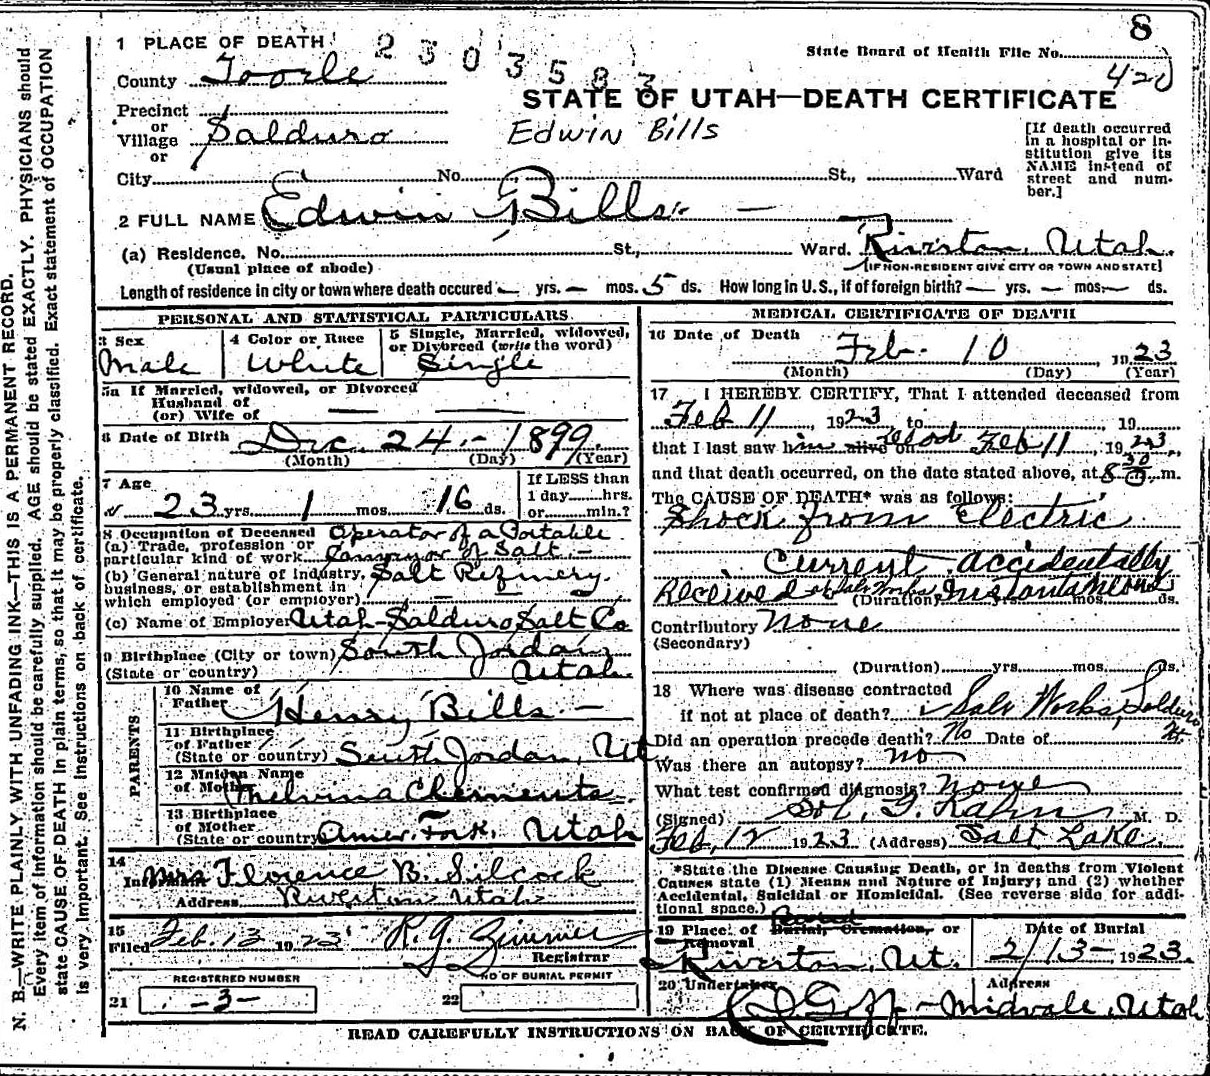 8
1 PLACE OF DEATH 2303583 State Board of Health File No.
County Tooele 420
STATE OF UTAH—DEATH CERTIFICATE
Precinct
or
Village Salduro Edwin Bills
or
[If death occurred in a hospital or institution give its NAME instead of street and number.]
City No. St., Ward
2 FULL NAME Edwin Bills
(a) Residence. No. St., Ward. Riverton, Utah.
(Usual place of abode) [IF NON-RESIDENT GIVE CITY OR TOWN AND STATE]
Length of residence in city or town where death occured — yrs. — mos. 5 ds. How long in U.S., if of foreign birth? — yrs. — mos. — ds.
PERSONAL AND STATISTICAL PARTICULARS.
3 Sex
Male
4 Color or Race
White
5 Single, Married, widowed,
or Divorced (write the word)
Single
5a If Married, widowed, or Divorced
Husband of
(or) Wife of — —
6 Date of Birth Dec. 24 - 1899
(Month) (Day) (Year)
7 Age If LESS than
23 yrs. 1 mos. 16 ds. 1 day hrs.
or min.?
8 Occupation of Deceased Operator of a Portable
(a) Trade, profession or
particular kind of work Conveyor of Salt.
(b) General nature of industry, Salt Refinery.
business, or establishment in
which employed (or employer)
(c) Name of Employer Utah-Salduro Salt Co
9 Birthplace (City or town) South Jordan
(State or country) Utah.
PARENTS
10 Name of
Father Henry Bills.
11 Birthplace
of Father
(State or country) South Jordan, Ut
12 Maiden Name
of Mother Melvina Clements.
13 Birthplace
of Mother
(State or country) Amer. Fork, Utah
14
Mrs Florence B. Silcock
Address Riverton Utah
15
Filed Feb. 13 1923 R. J. Zimmer
Registrar
REGISTERED NUMBER NO OF BURIAL PERMIT
21 -3- 22
MEDICAL CERTIFICATE OF DEATH
16 Date of Death Feb. 10, 1923
(Month) (Day) (Year)
17 I HEREBY CERTIFY, That I attended deceased from
Feb 11, 1923, to 19
that I last saw him alive on dead Feb 11, 1923,
and that death occurred, on the date stated above, at 8 30 m.
The CAUSE OF DEATH* was as follows:
Shock from Electric
Current accidentally
Received at Salt Works Instantaneous
(Duration) mos. ds.
Contributory None
(Secondary)
(Duration) yrs. mos. ds.
18 Where was disease contracted
if not at place of death? Salt Works, Salduro
Did an operation precede death? No Date of Ut.
Was there an autopsy? no
What test confirmed diagnosis? None
(Signed) Sol. G. Kahn M. D.
Feb, 12 1923 (Address) Salt Lake.
*State the Disease Causing Death, or in deaths from Violent
Causes state (1) Means and Nature of Injury; and (2) whether
Accidental, Suicidal or Homicidal. (See reverse side for addi-
tional space.)
19 Place of Burial, Cremation, or
Removal
Riverton, Ut.
Date of Burial
2/13-1923.
20 Undertaker Address
Goff - Midvale, Utah
READ CAREFULLY INSTRUCTIONS ON BACK OF CERTIFICATE.
N. B.—WRITE PLAINLY WITH UNFADING INK—THIS IS A PERMANENT RECORD.
Every item of information should be carefully supplied. AGE should be stated EXACTLY. PHYSICIANS should
state CAUSE OF DEATH in plain terms, so that it may be properly classified. Exact statement of OCCUPATION
is very important. See instructions on back of certificate.